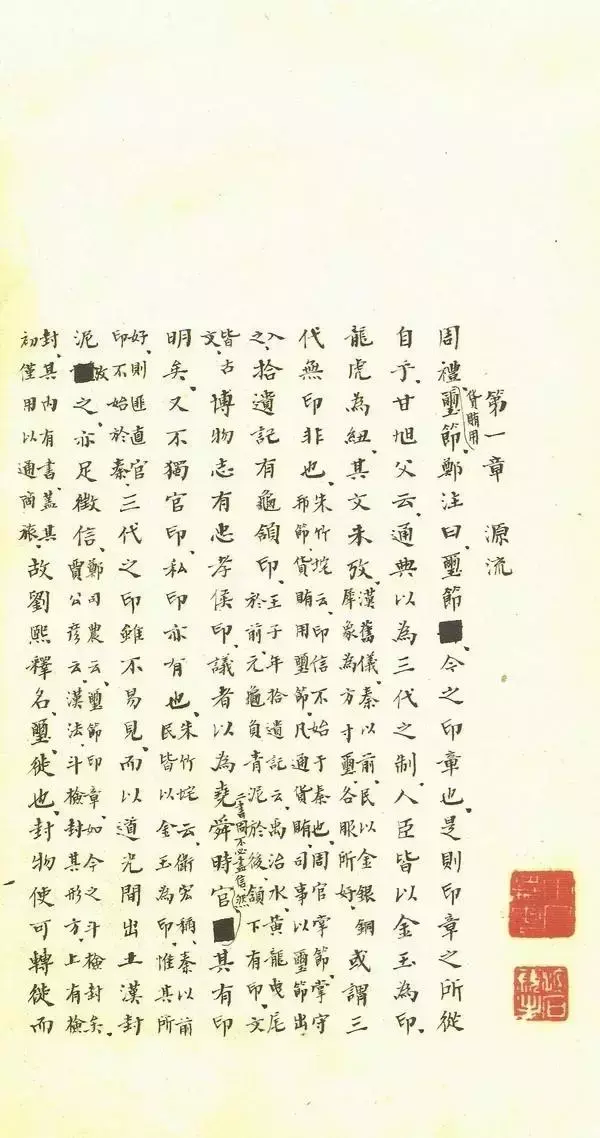 第一章　源流
周禮貨賄用璽節、鄭注曰、璽節今之印章也、是則印章之所從
自乎、甘旭父云、通典以為三代之制、人臣皆以金玉為印、
龍虎為紐、其文未攷、漢舊儀、秦以前、民以金銀銅犀象為方寸璽、各服所好、或謂三
代無印、非也、朱竹垞云、印信不始于秦也、周官掌節、掌守邦節、貨賄用璽節、凡通貨賄、司事以璽節出
入之、拾遺記有龜頷印、王子年拾遺記云、禹治水、黃龍曳尾於前、元龜負青泥於後、頷下有印、文
皆古文、博物志有忠孝侯印、議者以為堯舜時官、二書固不必盡信、然其有印
明矣、又不獨官印、私印亦有也、朱竹垞云、衛宏稱、秦以前民皆以金玉為印、惟其所
好、則匪直官印不始於秦、三代之印雖不易見、而以道光間出土漢封
泥攷之、亦足徵信、鄭司農云、璽節印章、如今之斗檢封矣、賈公彥云、漢法、斗檢封其形方、上有檢
封、其內有書、蓋其初僅用以通商旅、故劉熙釋名、璽、徙也、封物使可轉徙而